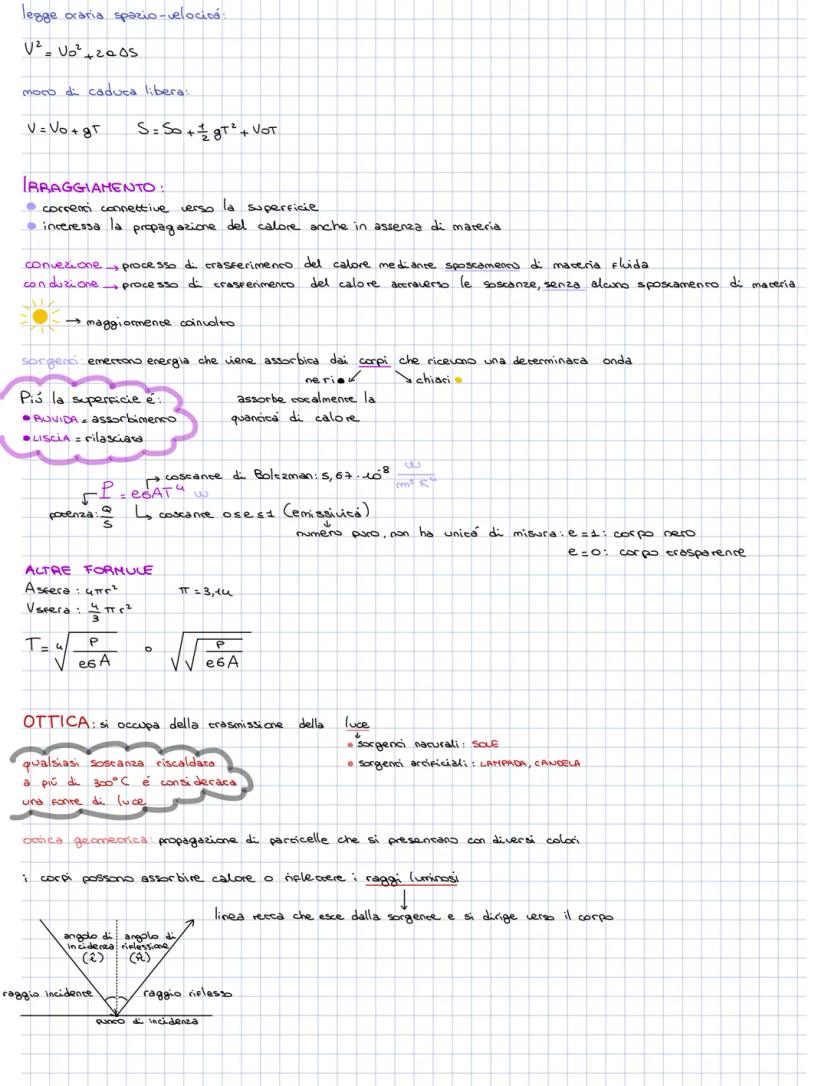 legge oraria spazio-velocitá:
V² = V₀² + 2aΔS
moto di caduta libera:
V = V₀ + gT S = S₀ + 1/2 gT² + V₀T
IRRAGGIAMENTO:
• correnti connettive verso la superficie
• interessa la propagazione del calore anche in assenza di materia
convezione → processo di trasferimento del calore mediante spostamento di materia fluida
conduzione → processo di trasferimento del calore attraverso le sostanze, senza alcuno spostamento di materia
→ maggiormente coinvolto
sorgenti: emettono energia che viene assorbita dai corpi che ricevono una determinata onda
neri chiari
Piú la superficie é:
• RUVIDA = assorbimento
• LISCIA = rilasciata
assorbe totalmente la
quantitá di calore
costante di Boltzman: 5,67 · 10⁻⁸ W/m²K⁴
P = eσAT⁴ W
potenza: Q/S
costante 0≤e≤1 (emissivitá)
numero puro, non ha unitá di misura: e=1: corpo nero
e=0: corpo trasparente
ALTRE FORMULE
Asfera: 4πr² π = 3,14
Vsfera: 4/3 πr²
T = ⁴√(P/eσA) o √√(P/eσA)
OTTICA: si occupa della trasmissione della luce
• sorgenti naturali: SOLE
• sorgenti artificiali: LAMPADA, CANDELA
qualsiasi sostanza riscaldata
a piú di 300°C é considerata
una fonte di luce
ottica geometrica: propagazione di particelle che si presentano con diversi colori
i corpi possono assorbire calore o riflettere i raggi luminosi
linea retta che esce dalla sorgente e si dirige verso il corpo
angolo di incidenza (î)
angolo di riflessione (r̂)
raggio incidente raggio riflesso
punto di incidenza